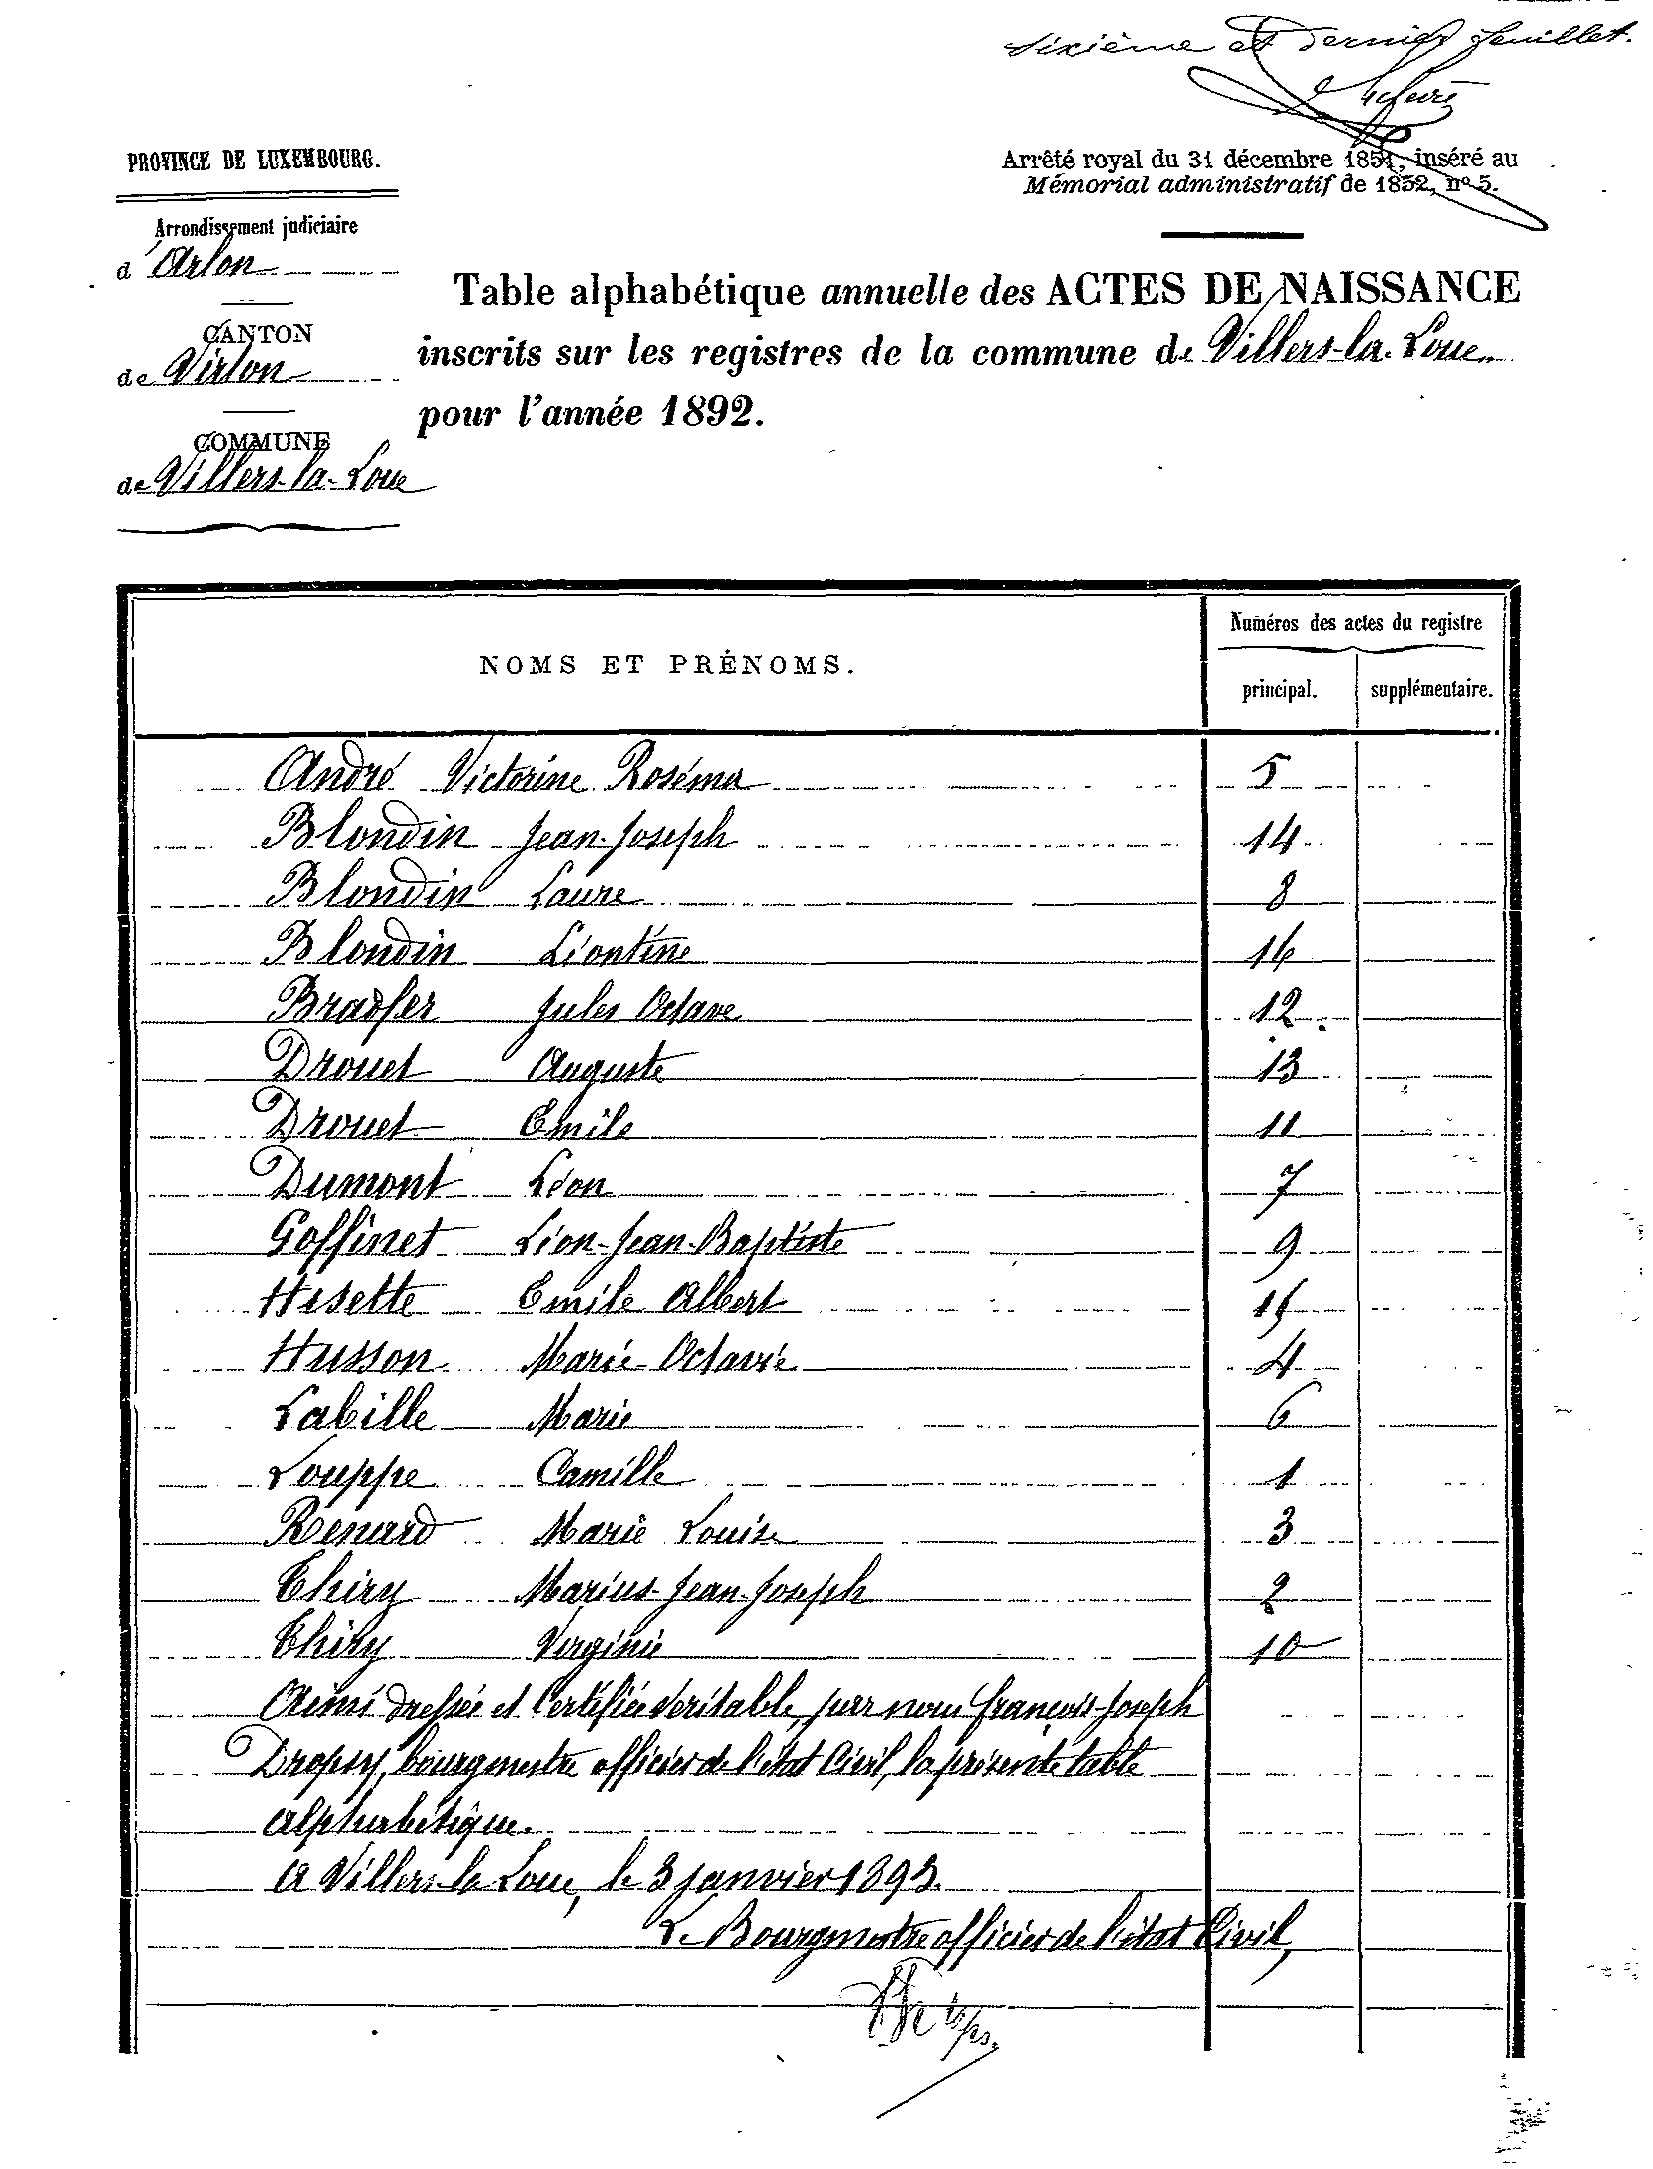 Sixième et dernier feuillet.
PROVINCE DE LUXEMBOURG.
Arrêté royal du 31 décembre 1851, inséré au
Mémorial administratif de 1852, nº 5.
Arrondissement judiciaire
d'Arlon
CANTON
de Virton
COMMUNE
de Villers-la-Loue
Table alphabétique annuelle des ACTES DE NAISSANCE
inscrits sur les registres de la commune de Villers-la-Loue
pour l'année 1892.
NOMS ET PRÉNOMS.
Numéros des actes du registre
principal. supplémentaire.
André Victorine Roséma 5
Blondin Jean-Joseph 14
Blondin Laure 8
Blondin Léontine 16
Bradfer Jules Octave 12
Drouet Auguste 13
Drouet Emile 11
Dumont Léon 7
Goffinet Léon-Jean-Baptiste 9
Hesette Emile Albert 15
Husson Marie-Octavie 4
Labille Marie 6
Louppe Camille 1
Renard Marie Louise 3
Thiry Marius-Jean-Joseph 2
Thiry Virginie 10
Ainsi dressée et certifiée véritable, par nous François-Joseph
Dropsy, bourgmestre officier de l'état Civil, la présente table
alphabétique.
A Villers-la-Loue, le 3 janvier 1893.
Le Bourgmestre officier de l'état Civil,